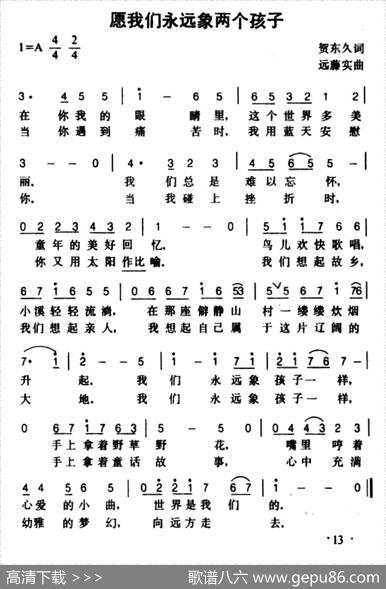 愿我们永远象两个孩子
1=A 4/4 2/4
贺东久词
远藤实曲
3· 4 5 5 1 - 6 5 6 5 3 2 1 2
在 你我的 眼 睛里, 这个世界多美
当 你遇到 痛 苦时, 我用蓝天安慰
3 - - 0 4· 3 2 3 4 5 6 5 5
丽. 我们总是 难以忘怀,
你. 当我碰上 挫折时,
0 2 2 3 4 3 2 1 - - 0 5 1 1 7 6 6
童年的美好回忆. 鸟儿欢快歌唱,
你又用太阳作比喻. 我们想起故乡,
0 1 2 1 6 7 1 6 0 6 6 7 1 6 5 3 5 5 6 7 1 7 6
小溪轻轻流淌, 在那座僻静山村一缕缕炊烟
我们想起亲人, 我想起自己属于这片辽阔的
7· 1 2 - - 5 1 - 1 7 1 2 1 7 6 7 -
升起. 我们永远象孩子一样,
大地. 我们永远象孩子一样,
0 6 7 1 7 6 3 5 - - 0 0 0 4 4 3 2 3
手上拿着野草野花, 嘴里哼着
手上拿着童话故事, 心中充满
4 4 5 5 6 0 2 2 2 1 7 6 7 1 - - 0
心爱的小曲, 世界是我们的.
幼雅的梦幻, 向远方走去.
· 13 ·
高清下载 >>>
歌谱八六 www.gepu86.com